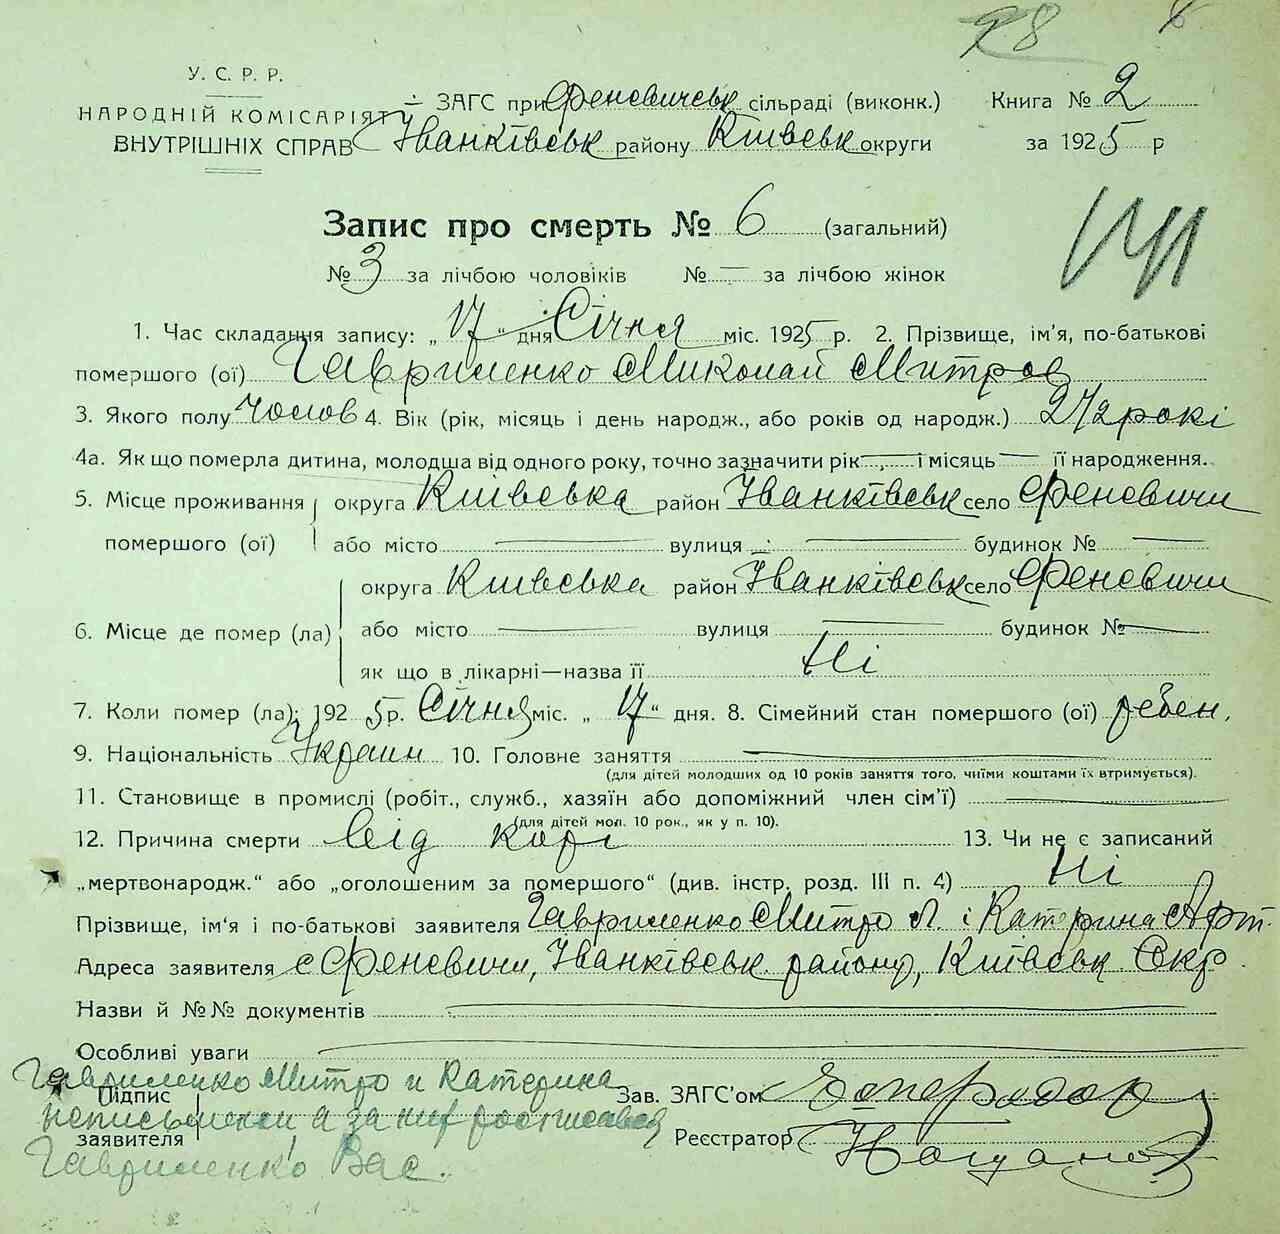 78
У. С. Р. Р.
НАРОДНІЙ КОМІСАРІЯТ
ВНУТРІШНІХ СПРАВ
ЗАГС при Феневичськ сільраді (виконк.)
Іванківськ району Київськ округи
Книга № 2
за 1925 р
Запис про смерть № 6 (загальний)
№ 3 за лічбою чоловіків № — за лічбою жінок
1. Час складання запису: „17“ дня Січня міс. 1925 р. 2. Прізвище, ім'я, по-батькові
помершого (ої) Гавриленко Миколай Митров
3. Якого полу Чолов 4. Вік (рік, місяць і день народж., або років од народж.) 2 1/2 рокі
4а. Як що померла дитина, молодша від одного року, точно зазначити рік — і місяць — її народження.
5. Місце проживання округа Київська район Іванківськ село Феневичи
помершого (ої) або місто — вулиця — будинок № —
округа Київська район Іванківськ село Феневичи
6. Місце де помер (ла) або місто — вулиця — будинок № —
як що в лікарні—назва її Ні
7. Коли помер (ла): 1925 р. Січня міс. „17“ дня. 8. Сімейний стан помершого (ої) ребен.
9. Національність Украин 10. Головне заняття —
(для дітей молодших од 10 років заняття того, чиїми коштами їх втримується).
11. Становище в промислі (робіт., служб., хазяїн або допоміжний член сім'ї) —
(для дітей мол. 10 рок., як у п. 10).
12. Причина смерти від корі 13. Чи не є записаний
„мертвонародж.“ або „оголошеним за помершого“ (див. інстр. розд. III п. 4) Ні
Прізвище, ім'я і по-батькові заявителя Гавриленко Митро Л. і Катерина Арт.
Адреса заявителя с Феневичи, Іванківськ району, Київськ Окр.
Назви й №№ документів —
Особливі уваги —
Гавриленко Митро и Катерина
Підпис неписьменни а за них росписався
заявителя Гавриленко Вас.
Зав. ЗАГС'ом
Реєстратор